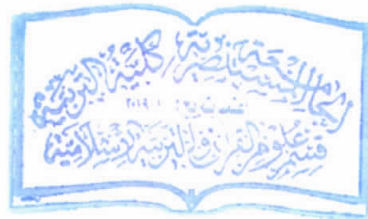 الجامعة المستنصرية / كلية التربية
قسم علوم القرآن والتربية الاسلامية